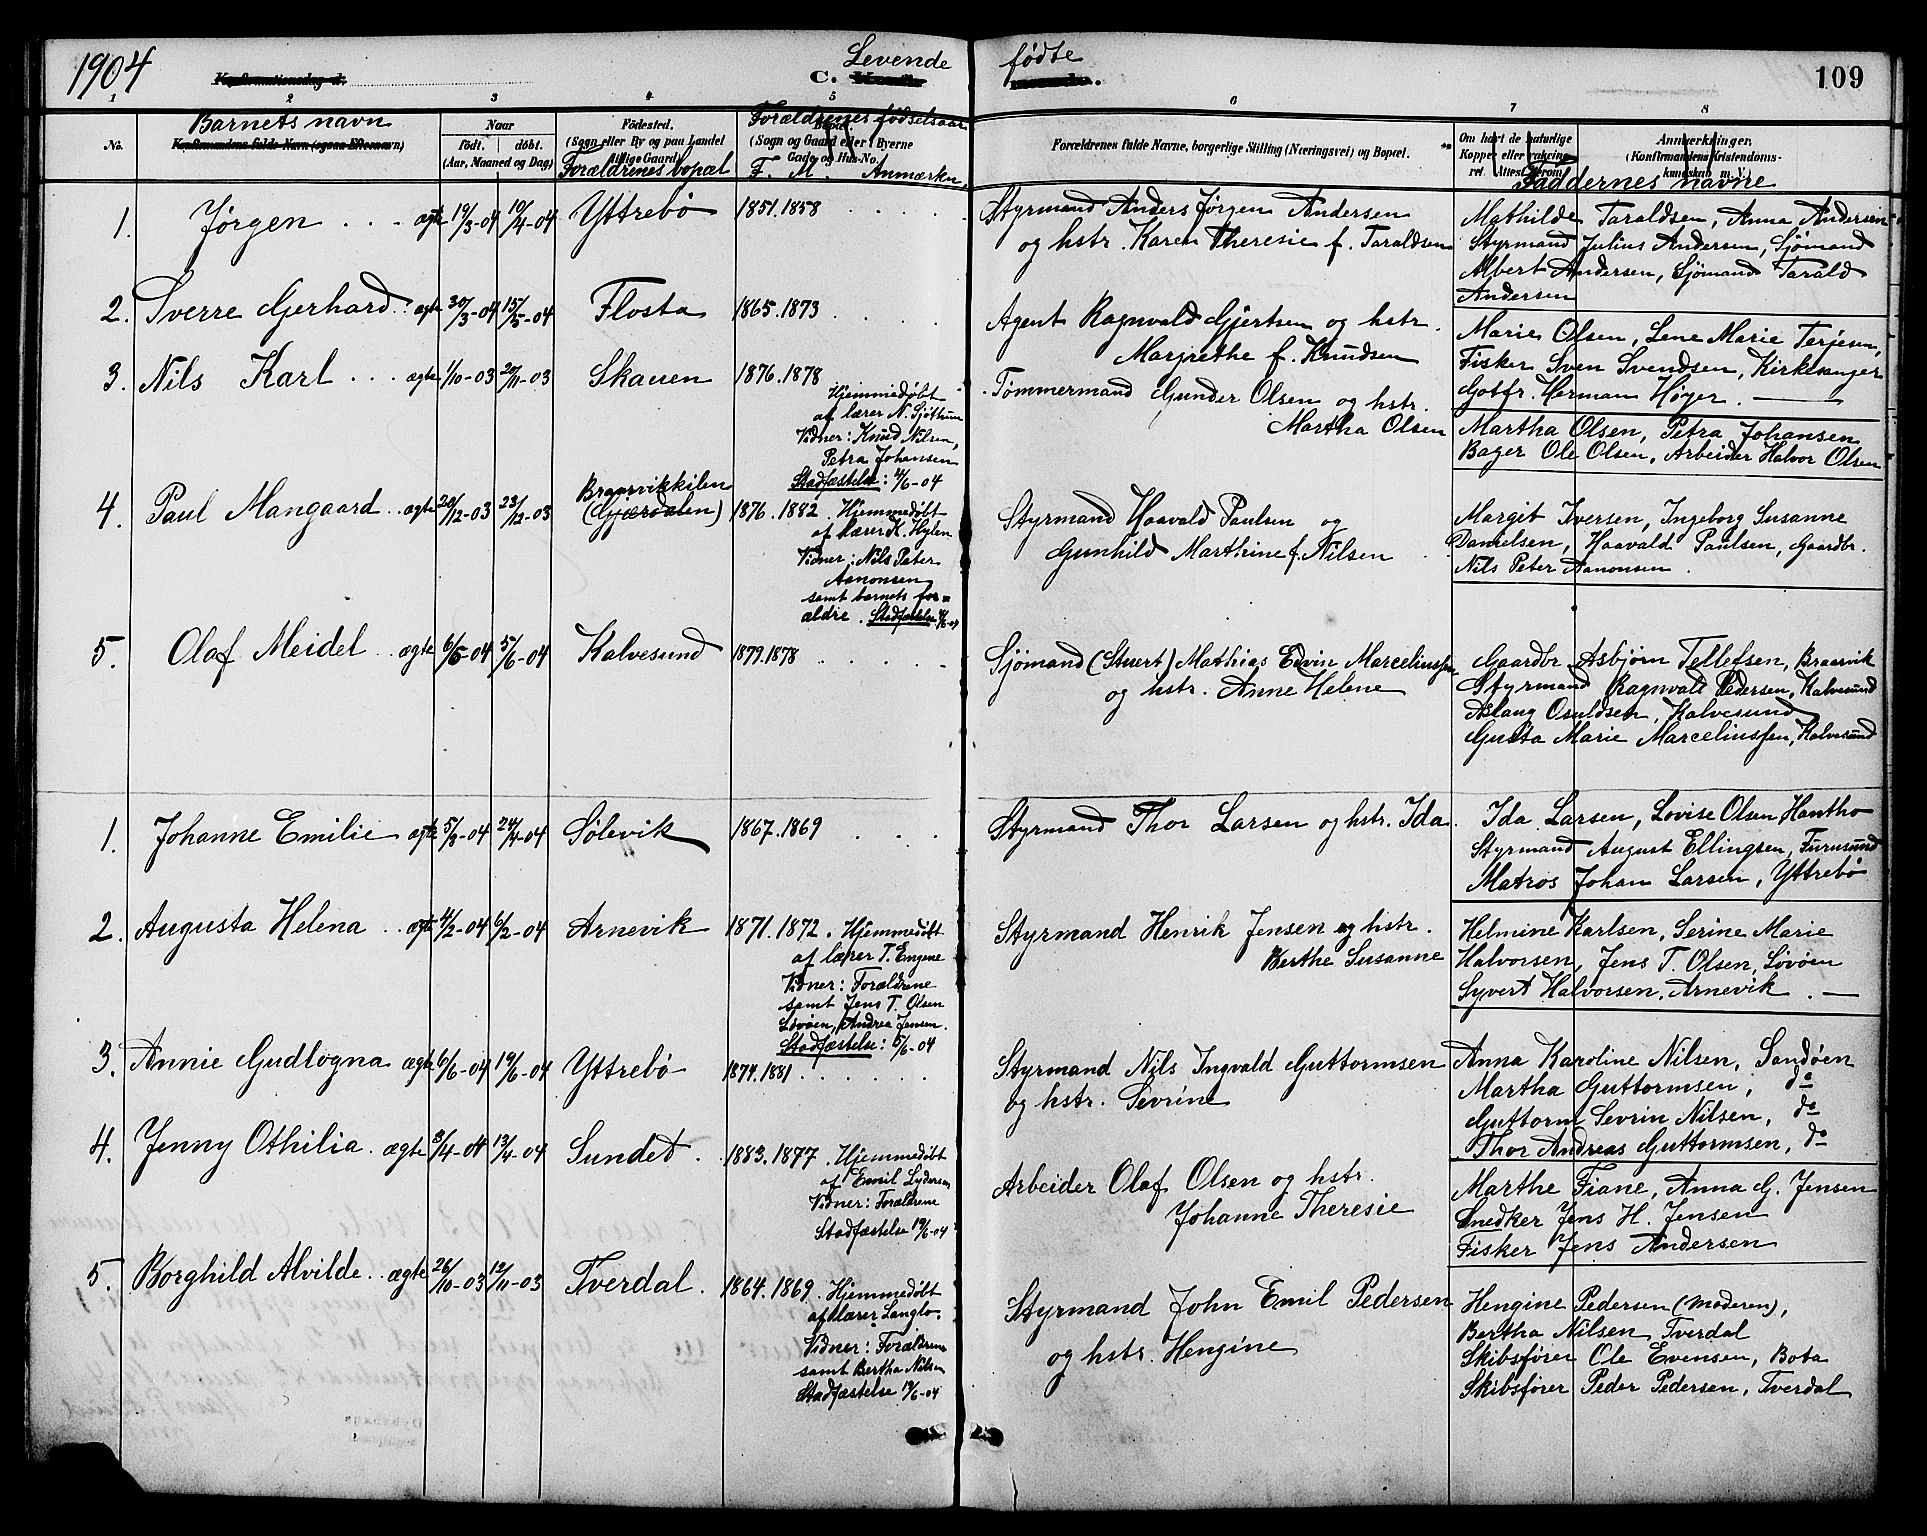 1904
Levende fødte
C.
109
Konfirmationsdag d.
1 2 3 4 5 6 7 8
No.
Barnets navn
Konfirmandens fulde Navn (ogsaa Efternavn)
Naar
født. døbt.
(Aar, Maaned og Dag)
Fødested.
(Sogn eller By og paa Landet
tillige Gaard)
Forældrenes bopæl
Forældrenes fødselsaar
Bopæl
(Sogn og Gaard eller i Byerne
Gade og Hus-No.
F. M. Anmærkn.
Forældrenes fulde Navne, borgerlige Stilling (Næringsvei) og Bopæl.
Om havt de naturlige
Kopper eller vakcine-
ret. Attest herom.
Anmerkninger.
(Konfirmandens Kristendoms-
kundskab m. V.)
Faddernes navne
1. Jørgen . . . ægte 19/3-04 10/4-04 Yttrebö 1851. 1858 . . . .
Styrmand Anders Jørgen Andersen
og hstr. Karen Theresie f. Taraldsen
Mathilde Taraldsen, Anna Andersen
Styrmand Julius Andersen, Sjömand
Albert Andersen, Sjömand Tarald
Andersen
2. Sverre Gerhard . . ægte 30/3-04 15/5-04 Flosta 1865. 1873 . . . .
Agent Ragnvald Gjertsen og hstr.
Margrethe f. Knudsen
Marie Olsen, Lene Marie Terjesen,
Fisker Sven Svendsen, Kirkesanger
Gotfr. Herman Høyer. —
3. Nils Karl . . . ægte 1/10-03 20/11-03 Skauen 1876. 1878
Hjemmedøbt
af lærer N. Sjöthun
Vidner: Knud Nilsen,
Petra Johansen
Stadfæstelse: 4/6-04
Tømmermand Gunder Olsen og hstr.
Martha Olsen
Martha Olsen, Petra Johansen
Bager Ole Olsen, Arbeider Halvor Olsen
4. Paul Mangaard . . ægte 20/12-03 23/12-03 Braarvikkilen
(Gjærdalen) 1876. 1882 . Hjemmedøbt
af lærer K. Heylen
Vidner: Nils Peter
Aanonsen
samt barnets for=
ældre. Stadfæstelse 4/6-04
Styrmand Haavald Paulsen og
Gunhild Marthine f. Nilsen
Margit Iversen, Ingeborg Susanne
Danielsen, Haavald Paulsen, Gaardbr.
Nils Peter Aanonsen
5. Olaf Meidel . . ægte 6/5-04 5/6-04 Kalvesund 1879. 1878 . . . .
Sjömand (Stuert) Mathias Edvin Marceliussen
og hstr. Anne Helene
Gaardbr. Asbjørn Tellefsen, Braarvik
Styrmand Ragnvald Pedersen, Kalvesund
Aslaug Osuldsen, Kalvesund
Gusta Marie Marceliussen, Kalvesund
1. Johanne Emilie ægte 5/3-04 24/4-04 Sølevik 1867. 1869 . . .
Styrmand Thor Larsen og hstr. Ida.
Ida Larsen, Lovise Olsen Hantho
Styrmand August Ellingsen, Furusund
Matros Johan Larsen, Yttrebö
2. Augusta Helena . . ægte 4/2-04 6/2-04 Arnevik 1871. 1872 . Hjemmedøbt
af lærer T. Emgene
Vidner: Forældrene
samt Jens T. Olsen
Løvøen, Andrea Jensen.
Stadfæstelse: 5/6-04
Styrmand Henrik Jensen og hstr.
Berthe Susanne
Helmine Karlsen, Serine Marie
Halvorsen, Jens T. Olsen, Løvøen
Syvert Halvorsen, Arnevik . —
3. Annie Gudlogna ægte 6/6-04 19/6-04 Yttrebø 1874. 1881 . . . . . .
Styrmand Nils Ingvald Guttormsen
og hstr. Sevrine
Anna Karoline Nilsen, Sandøen
Martha Guttormsen, do
Guttorm Sevrin Nilsen, do
Thor Andreas Guttormsen, do
4. Jenny Othilia . ægte 8/4-04 13/4-04 Sundet . 1883. 1877 . Hjemmedøbt
af Emil Lydersen
Vidner: Forældrene
Stadfæstelse 19/6-04
Arbeider Olaf Olsen og hstr.
Johanne Theresie
Marthe Fiane, Anna G. Jensen
Snedker Jens H. Jensen
Fisker Jens Andersen
5. Borghild Alvilde . . ægte 26/10-03 12/11-03 Tverdal . 1864. 1869 . Hjemmedøbt
af lærer Langlo.
Vidner: Forældrene
samt Bertha Nilsen
Stadfæstelse 19/6-04
Styrmand John Emil Pedersen
og hstr. Hengine
Hengine Pedersen (Moderen),
Bertha Nilsen Tverdal
Skibsfører Ole Evensen, Bota
Skibsfører Peder Pedersen, Tverdal